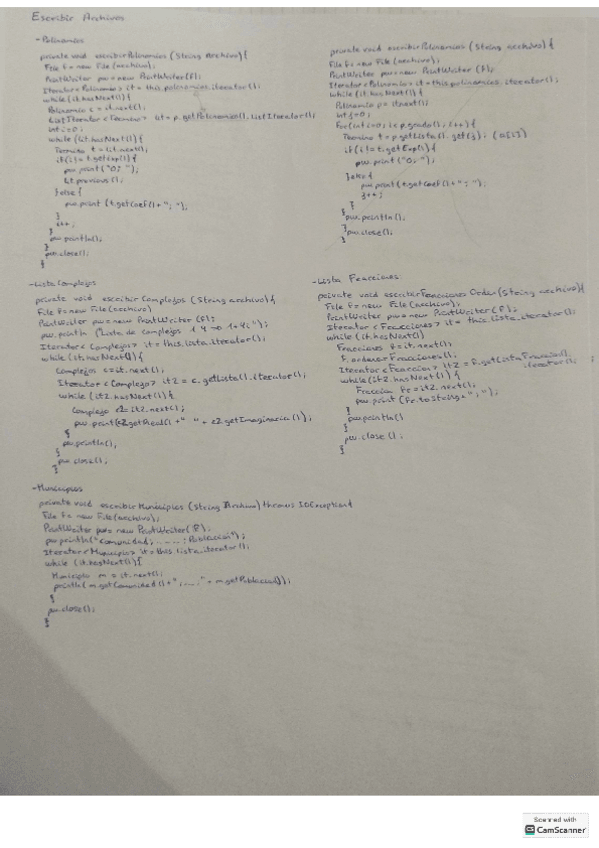 Escribir Archivos
- Polinomios
private void escribirPolinomios (String Archivo){
File F= new File (archivo);
PrintWriter pw= new PrintWriter(F);
Iterator<Polinomio> it = this.polinomios.iterator();
while (it.hasNext()){
Polinomio p = it.next();
ListIterator<Termino> lit= p.getPolinomio().listIterator();
int i=0;
while (lit.hasNext()){
Termino t = lit.next();
if(i!= t.getExp()){
pw.print ("0; ");
lit.previous();
}else{
pw.print (t.getCoef()+"; ");
}
i++;
}
pw.println();
}
pw.close();
}
private void escribirPolinomios (String archivo){
File F= new File (archivo);
PrintWriter pw= new PrintWriter (F);
Iterator<Polinomio> it= this.polinomios.iterator();
while (it.hasNext()){
Polinomio p= it.next();
int j=0;
For(int i=0; i< p.grado(); i++){
Termino t = p.getLista().get(j);
if(i!= t.getExp(){
pw.print("0; ");
}else{
pw.print(t.getCoef()+"; ");
j++;
}
}
pw.println();
}
pw.close();
}
- Lista Complejos
private void escribirComplejos (String archivo){
File F= new File (archivo)
PrintWriter pw= new PrintWriter (F);
pw.println ("Lista de complejos
Iterator<Complejos> it= this.lista.iterator();
while (it.hasNext()){
Complejos c=it.next();
Iterator<Complejo> it2 = c.getLista().iterator();
while (it2.hasNext()){
Complejo c2= it2.next();
pw.print(c2.getReal()+" "+ c2.getImaginaria());
}
pw.println();
}
pw.close();
}
- Lista Fracciones:
private void escribirFraccionesOrden(String archivo){
File F= new File (archivo);
PrintWriter pw= new PrintWriter(F);
Iterator<Fracciones> it= this.lista.iterator();
while (it.hasNext()
Fracciones F=it.next();
F.ordenarFracciones();
Iterator<Fraccion> it2 = F.getListaFraccion().iterator();
while(it2.hasNext()){
Fraccion Fr=it2.next();
pw.print(Fr.toString+";");
}
pw.println()
}
pw.close();
}
- Municipios
private void escribirMunicipios (String Archivo) throws IOException{
File F= new File(archivo);
PrintWriter pw= new PrintWriter(F);
pw.println("Comunidad; ......; Poblacion");
Iterator<Municipio> it= this.lista.iterator();
while (it.hasNext(){
Municipio m = it.next();
println( m.getComunidad()+";...;"+ m.getPoblacion());
}
pw.close();
}
Scanned with
CamScanner